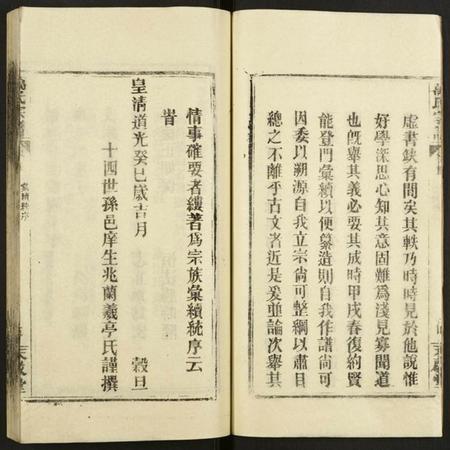 虛書缺有間矣其軼乃時時見於他說惟
好學深思心知其意固難為淺見寡聞道
也旣舉其義必要其成時甲戌春復約賢
能登門彙續以便纂造則自我作譜尚可
因委以溯源自我立宗尚可整綱以肅目
總之不離乎古文者近是爰並論次舉其
情事確要者著為宗族彙續統序云
旹
皇清道光癸巳歲吉月 穀旦
十四世孫邑庠生兆蘭羲亭氏謹撰